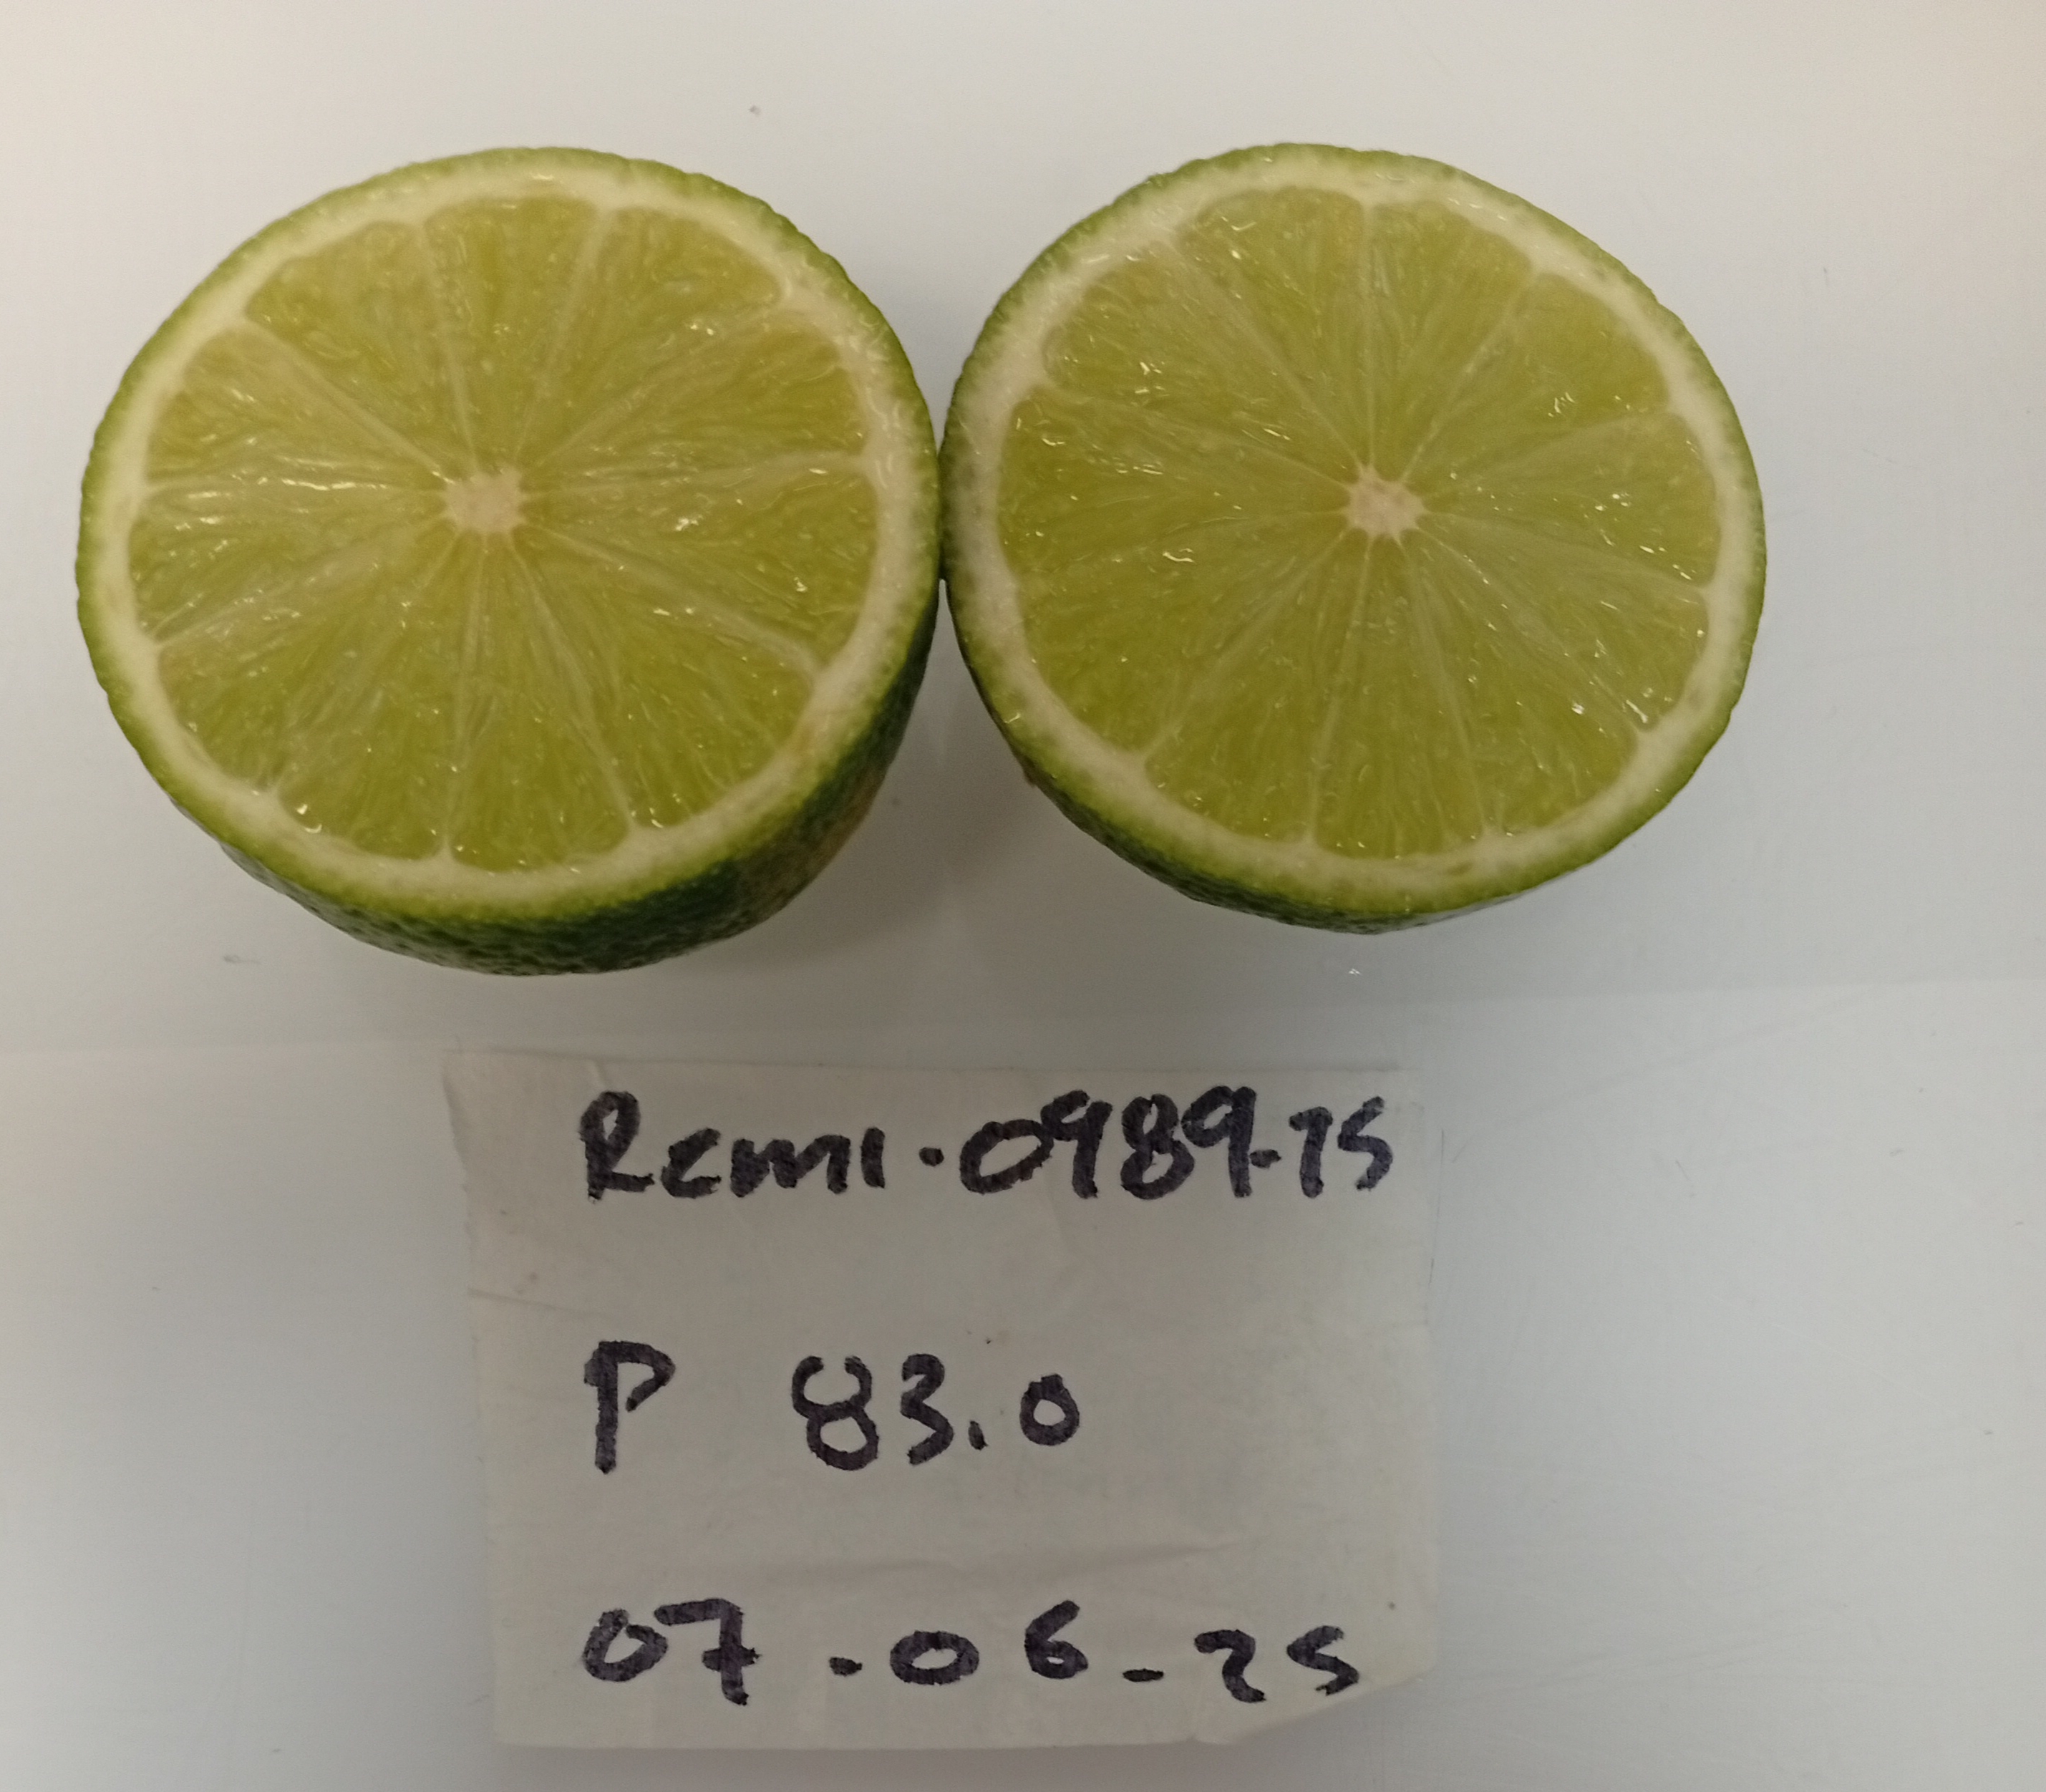 Remi-0989-25
P 83.0
07-06-25